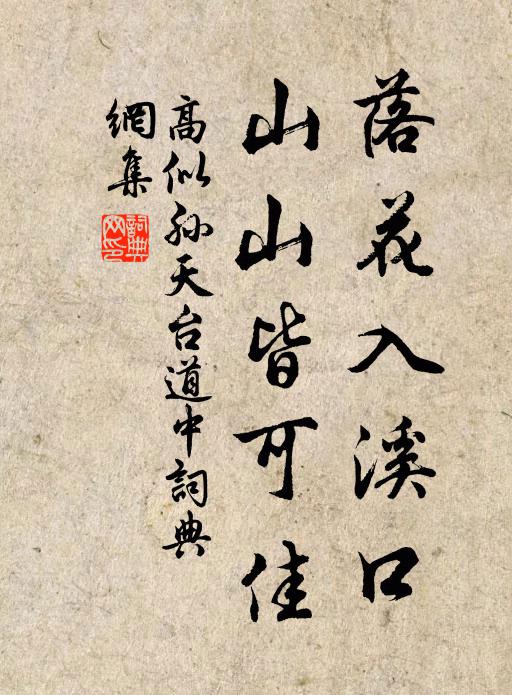 落花入溪口
山山皆可佳
高似孫天台道中詞典
網集
詞典
网印